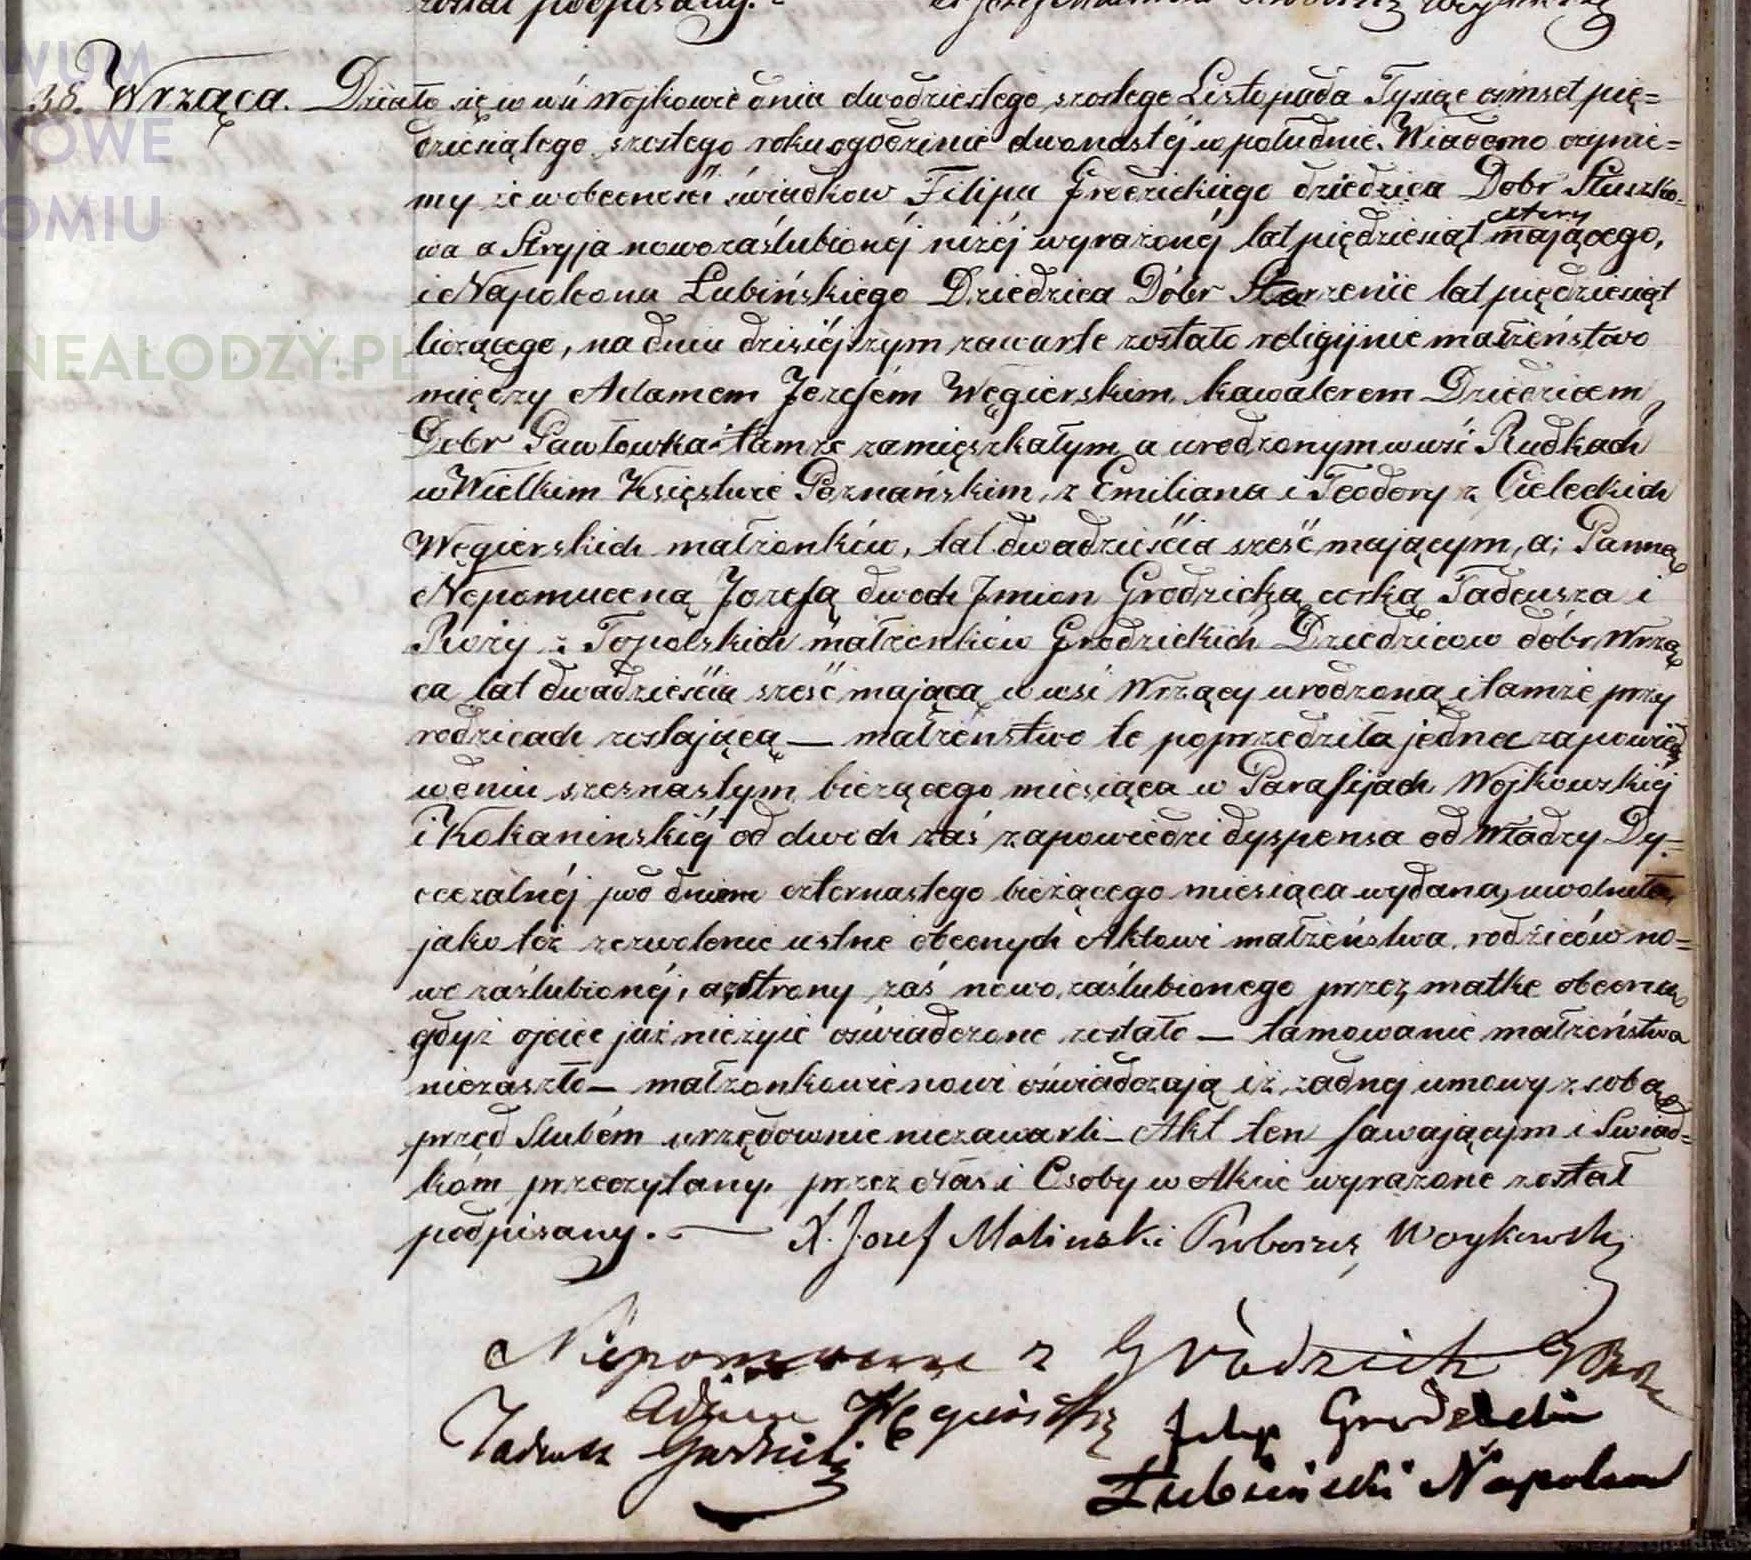 został podpisany. –
WUM
38. Wrząca. Działo się w wsi Wojkowie dnia dwódziestego szostego Listopada Tysiąc osmset pię=
WOWE
dziesiątego szostego roku o godzinie dwonastéj w południe. Wiadomo czynie=
my że w obecności świadkow Filipa Grodzickiego dziedzica Dobr Stuszko=
OMIU
cztery
wa a Stryja nowozaślubionéj niżéj wyrażonéj lat pięDziesiąt mającego,
i Napoleona Łubińskiego Dziedzica Dóbr lat pięDziesiąt
liczącego, na dniu dzisiéjszym zawarte zostało religijnie małżeństwo
NEALODZY.PL
między Adamem Jozefém Węgierskim kawalerem Dziedzicem
Dobr Pawłowka tamże zamięszkałym a urodzonym w wsi Rudkach
w Wielkim Księstwie Poznańskim, z Emiliana i Teodory z Cieleckich
Węgierskich małżonków, lat dwadzieścia sześć mającym, a; Panną
Nepomuceną Jozefą dwoch Jmion Grodzicką corką Tadeusza i
Rózy z Topolskich małżonków Grodzickich Dziedzicow dóbr Wrzą
ca lat dwadzieścia sześć mającą w wsi Wrzący urodzoną i tamże przy
rodzicach zostającą — małżeństwo te poprzedziła jedna zapowiedź
w dniu szesnastym bieżącego miesiąca w Parafijach Wojkowskiéj
i Kokaninskiéj od dwoch zaś zapowiedzi dyspensa od Władzy Dy=
ecezalnéj pod dniem czternastego bieżącego miesiąca wydana, uwolniła
jako też zezwolenie ustne obecnych Aktowi małżeństwa rodziców no=
wo zaślubionéj, a z strony zaś nowo zaślubionego przez matkę obecną
gdyż ojciec już nieżyie oświadczone zostało — tamowanie małżeństwa
niezaszło — małżonkowie nowi oświadczają iż żadnej umowy z sobą
przed Slubém urzędownie niezawarli – Akt ten stawającym i Swiad=
kóm przeczytany, przez Nas i Osoby w Akcie wyrażone został
podpisany. — X. Jozef Molinski Proboszcz Woykowski
Nepomucena z Grodzickich
Adam Węgierski Filip Grodzicki
Tadeusz Grodzicki
Łubieński Napoleon